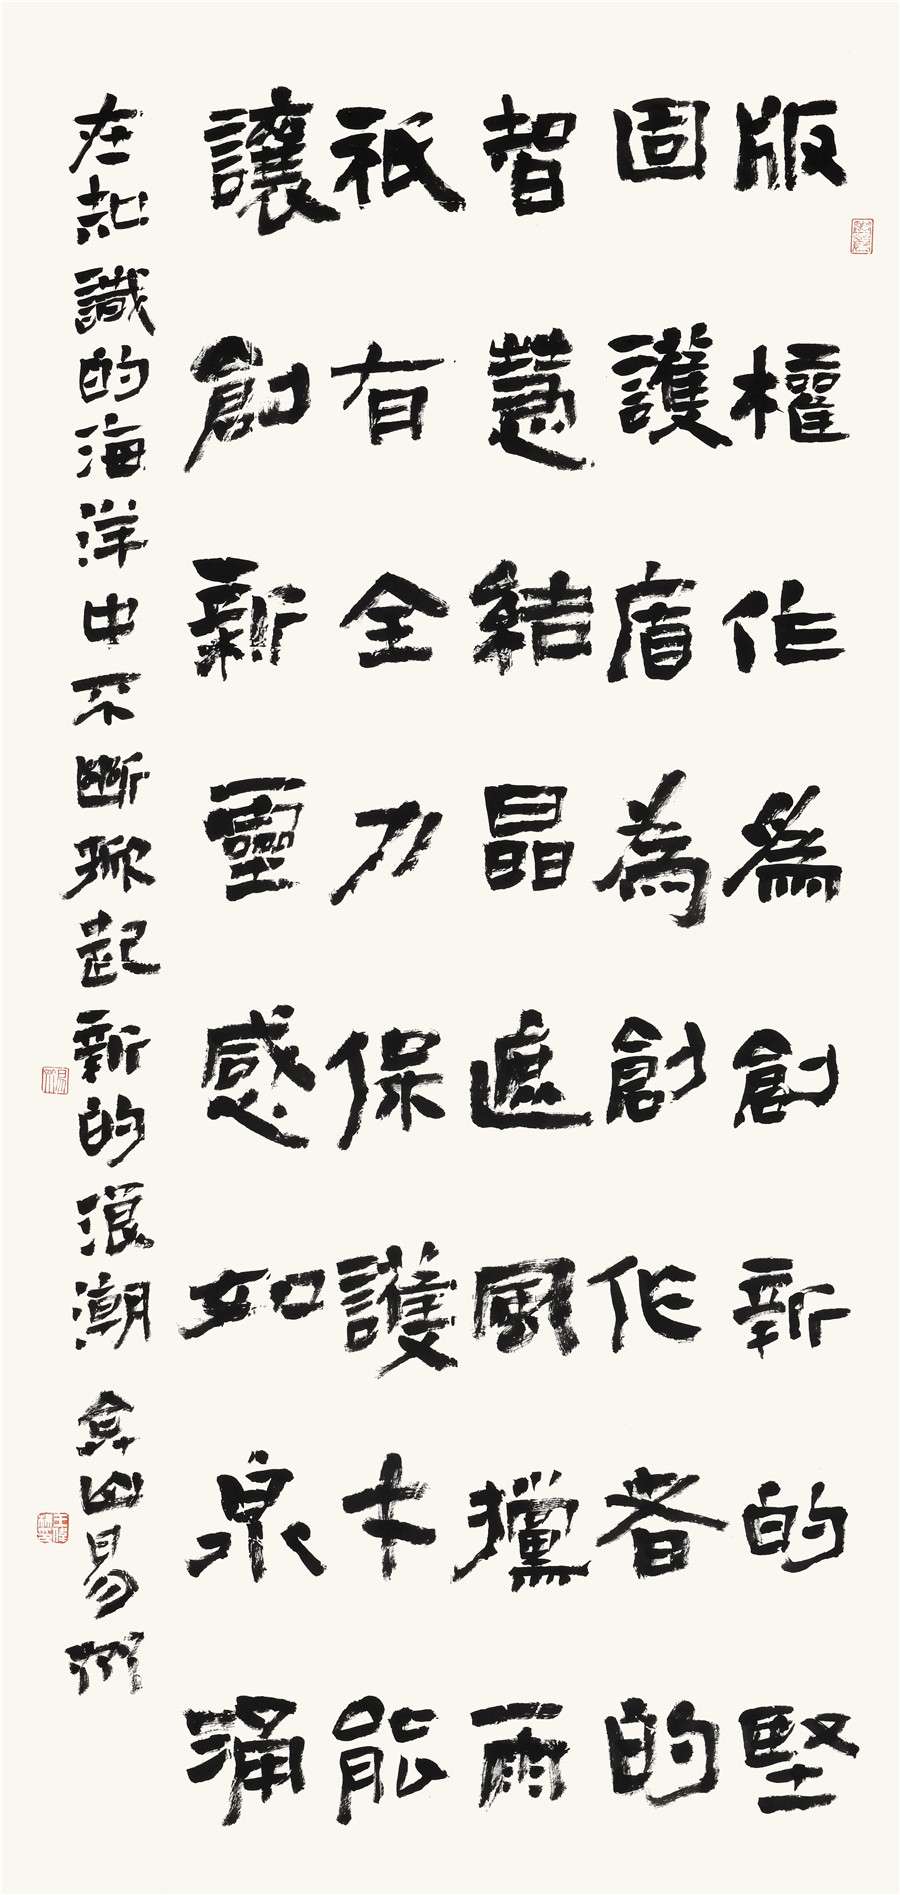 版權作為創新的堅
固護盾為創作者的
智慧結晶遮風擋雨
祇有全力保護才能
讓創新靈感如泉涌
在知識的海洋中不斷掀起新的浪潮 弇山易州